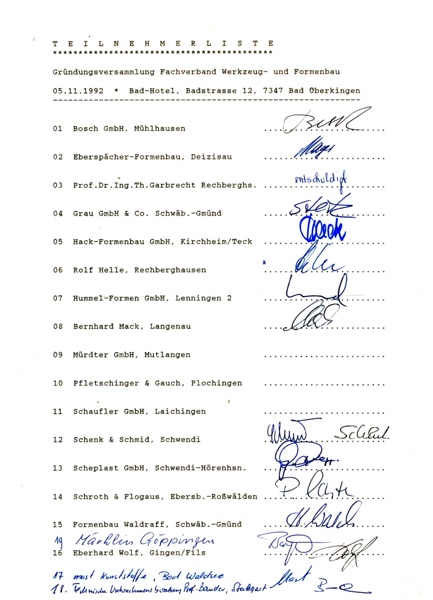 TEILNEHMERLISTE
*******************************************
Gründungsversammlung Fachverband Werkzeug- und Formenbau
05.11.1992 * Bad-Hotel, Badstrasse 12, 7347 Bad Überkingen
01 Bosch GmbH, Mühlhausen
02 Eberspächer-Formenbau, Deizisau
03 Prof.Dr.Ing.Th.Garbrecht Rechberghs. entschuldigt
04 Grau GmbH & Co. Schwäb.-Gmünd
05 Hack-Formenbau GmbH, Kirchheim/Teck
06 Rolf Helle, Rechberghausen
07 Hummel-Formen GmbH, Lenningen 2
08 Bernhard Mack, Langenau
09 Mürdter GmbH, Mutlangen
10 Pfletschinger & Gauch, Plochingen
11 Schaufler GmbH, Laichingen
12 Schenk & Schmid, Schwendi
13 Scheplast GmbH, Schwendi-Hörenhsn.
14 Schroth & Flogaus, Ebersb.-Roßwälden
15 Formenbau Waldraff, Schwäb.-Gmünd
19 Märklin Göppingen
16 Eberhard Wolf, Gingen/Fils
17 most Kunststoffe, Bad Waldsee
18. Technische Prof. Stuttgart